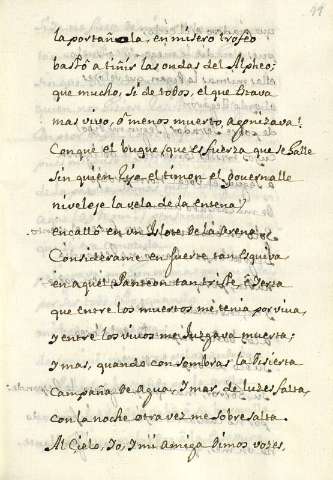 91
la portañola, en misero trofeo
bastó a tiñir las ondas del Alpheo;
que mucho, si de todos, el que estava
mas vivo, ó menos muerto, agonizava!
Conque el bugue, que es fuerza que se halle
sin quien rija el timon, el governalle
nivele, je la vela de la entena,
encalló en un Islote de la Arena.
Considerame en suerte tan esquiva
en aquel Panteon tan triste,
que entre los muertos me tenia por viva,
y entre los vivos me Juzgava muerta;
y mas, quando con sombras la desierta
Campaña de Agua, y mar de luzes falta,
con la noche otra vez me sobresalta.
Al Cielo, Io, y mi amiga dimos vozes,